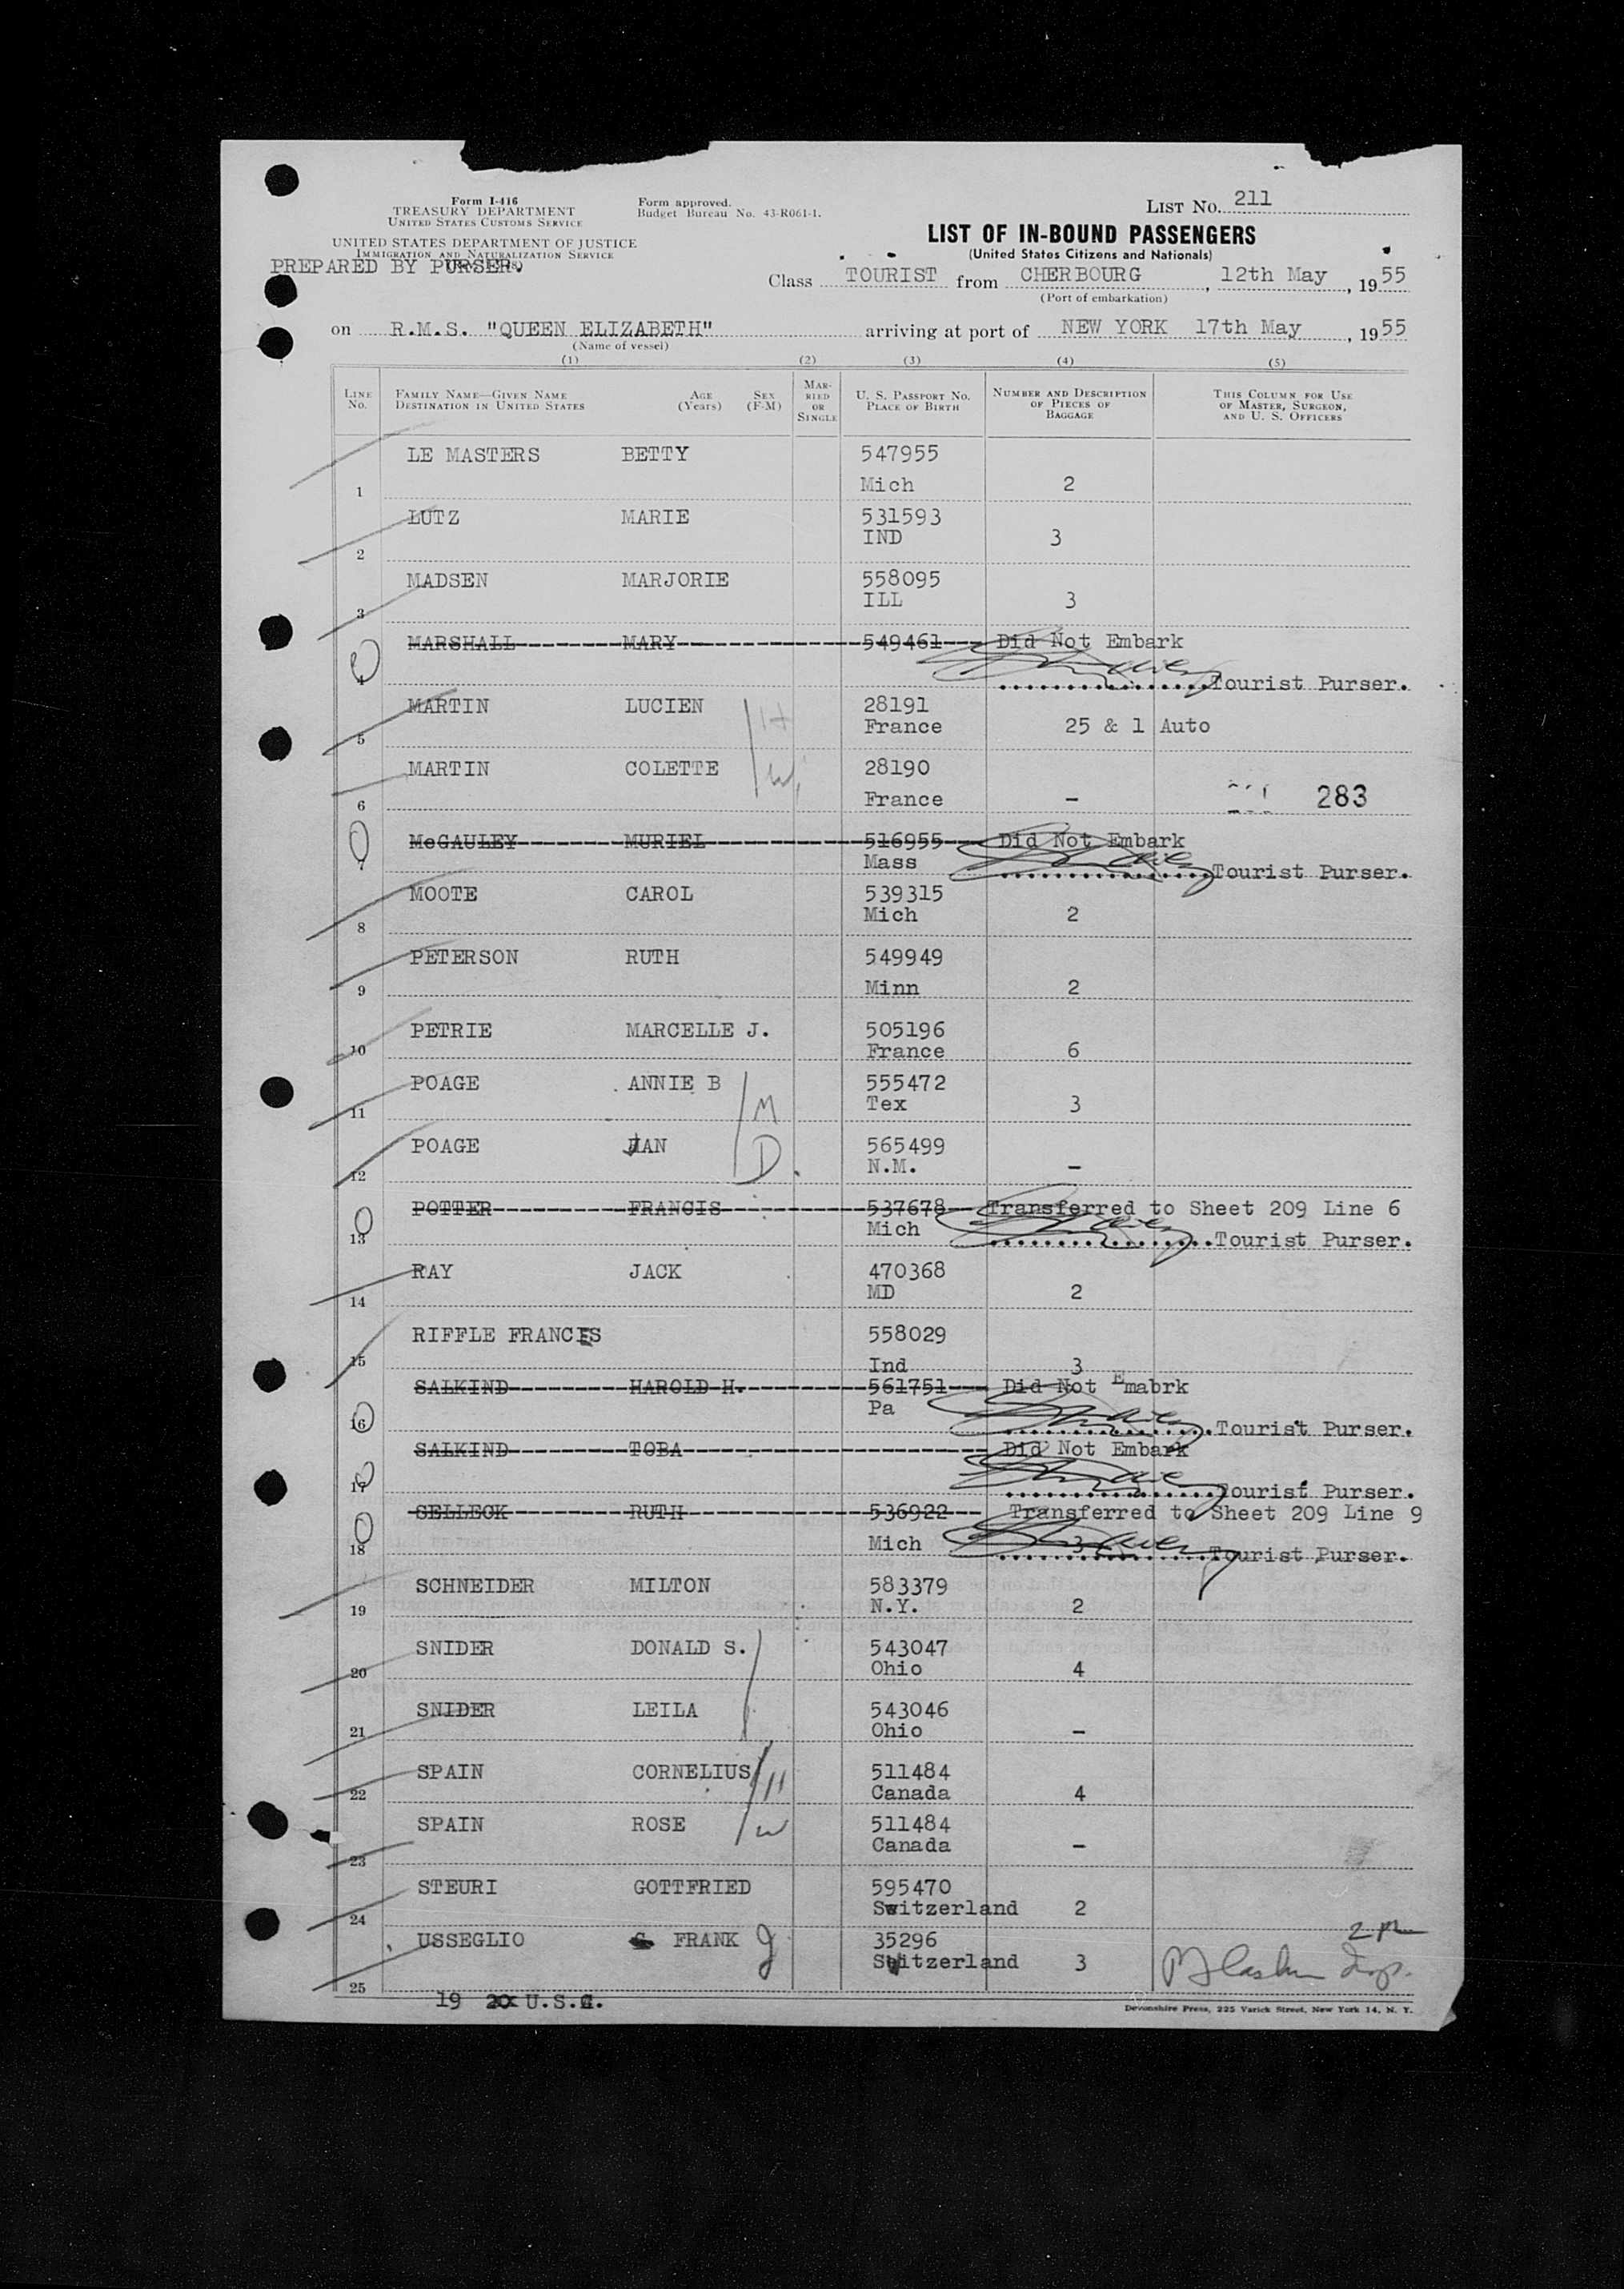 Form I-416
TREASURY DEPARTMENT
UNITED STATES CUSTOMS SERVICE
UNITED STATES DEPARTMENT OF JUSTICE
IMMIGRATION AND NATURALIZATION SERVICE
PREPARED BY PURSER.
Form approved.
Budget Bureau No. 43-R061-1.
LIST No. 211
LIST OF IN-BOUND PASSENGERS
(United States Citizens and Nationals)
Class TOURIST from CHERBOURG, 12th May, 1955
(Port of embarkation)
on R.M.S. "QUEEN ELIZABETH" arriving at port of NEW YORK 17th May, 1955
(Name of vessel)
(1) (2) (3) (4) (5)
LINE No.
FAMILY NAME—GIVEN NAME
DESTINATION IN UNITED STATES
AGE (Years)
SEX (F-M)
MARRIED OR SINGLE
U. S. PASSPORT No.
PLACE OF BIRTH
NUMBER AND DESCRIPTION OF PIECES OF BAGGAGE
THIS COLUMN FOR USE OF MASTER, SURGEON, AND U. S. OFFICERS
LE MASTERS BETTY 547955
1 Mich 2
LUTZ MARIE 531593
2 IND 3
MADSEN MARJORIE 558095
3 ILL 3
MARSHALL MARY 549461 Did Not Embark
4 Tourist Purser.
MARTIN LUCIEN H 28191
5 France 25 & 1 Auto
MARTIN COLETTE W 28190
6 France - 283
McGAULEY MURIEL 516955 Did Not Embark
7 Mass Tourist Purser.
MOOTE CAROL 539315
8 Mich 2
PETERSON RUTH 549949
9 Minn 2
PETRIE MARCELLE J. 505196
10 France 6
POAGE ANNIE B M 555472
11 Tex 3
POAGE JAN D. 565499
12 N.M. -
POTTER FRANCIS 537678 Transferred to Sheet 209 Line 6
13 Mich Tourist Purser.
RAY JACK 470368
14 MD 2
RIFFLE FRANCES 558029
15 Ind 3
SALKIND HAROLD H. 561751 Did Not Emabrk
16 Pa Tourist Purser.
SALKIND TOBA Did Not Embark
17 Tourist Purser.
SELLECK RUTH 536922 Transferred to Sheet 209 Line 9
18 Mich 3 Tourist Purser.
SCHNEIDER MILTON 583379
19 N.Y. 2
SNIDER DONALD S. 543047
20 Ohio 4
SNIDER LEILA 543046
21 Ohio -
SPAIN CORNELIUS H 511484
22 Canada 4
SPAIN ROSE W 511484
23 Canada -
STEURI GOTTFRIED 595470
24 Switzerland 2
USSEGLIO FRANK J 35296
25 Switzerland 3
19 U.S.C.
Devonshire Press, 225 Varick Street, New York 14, N. Y.